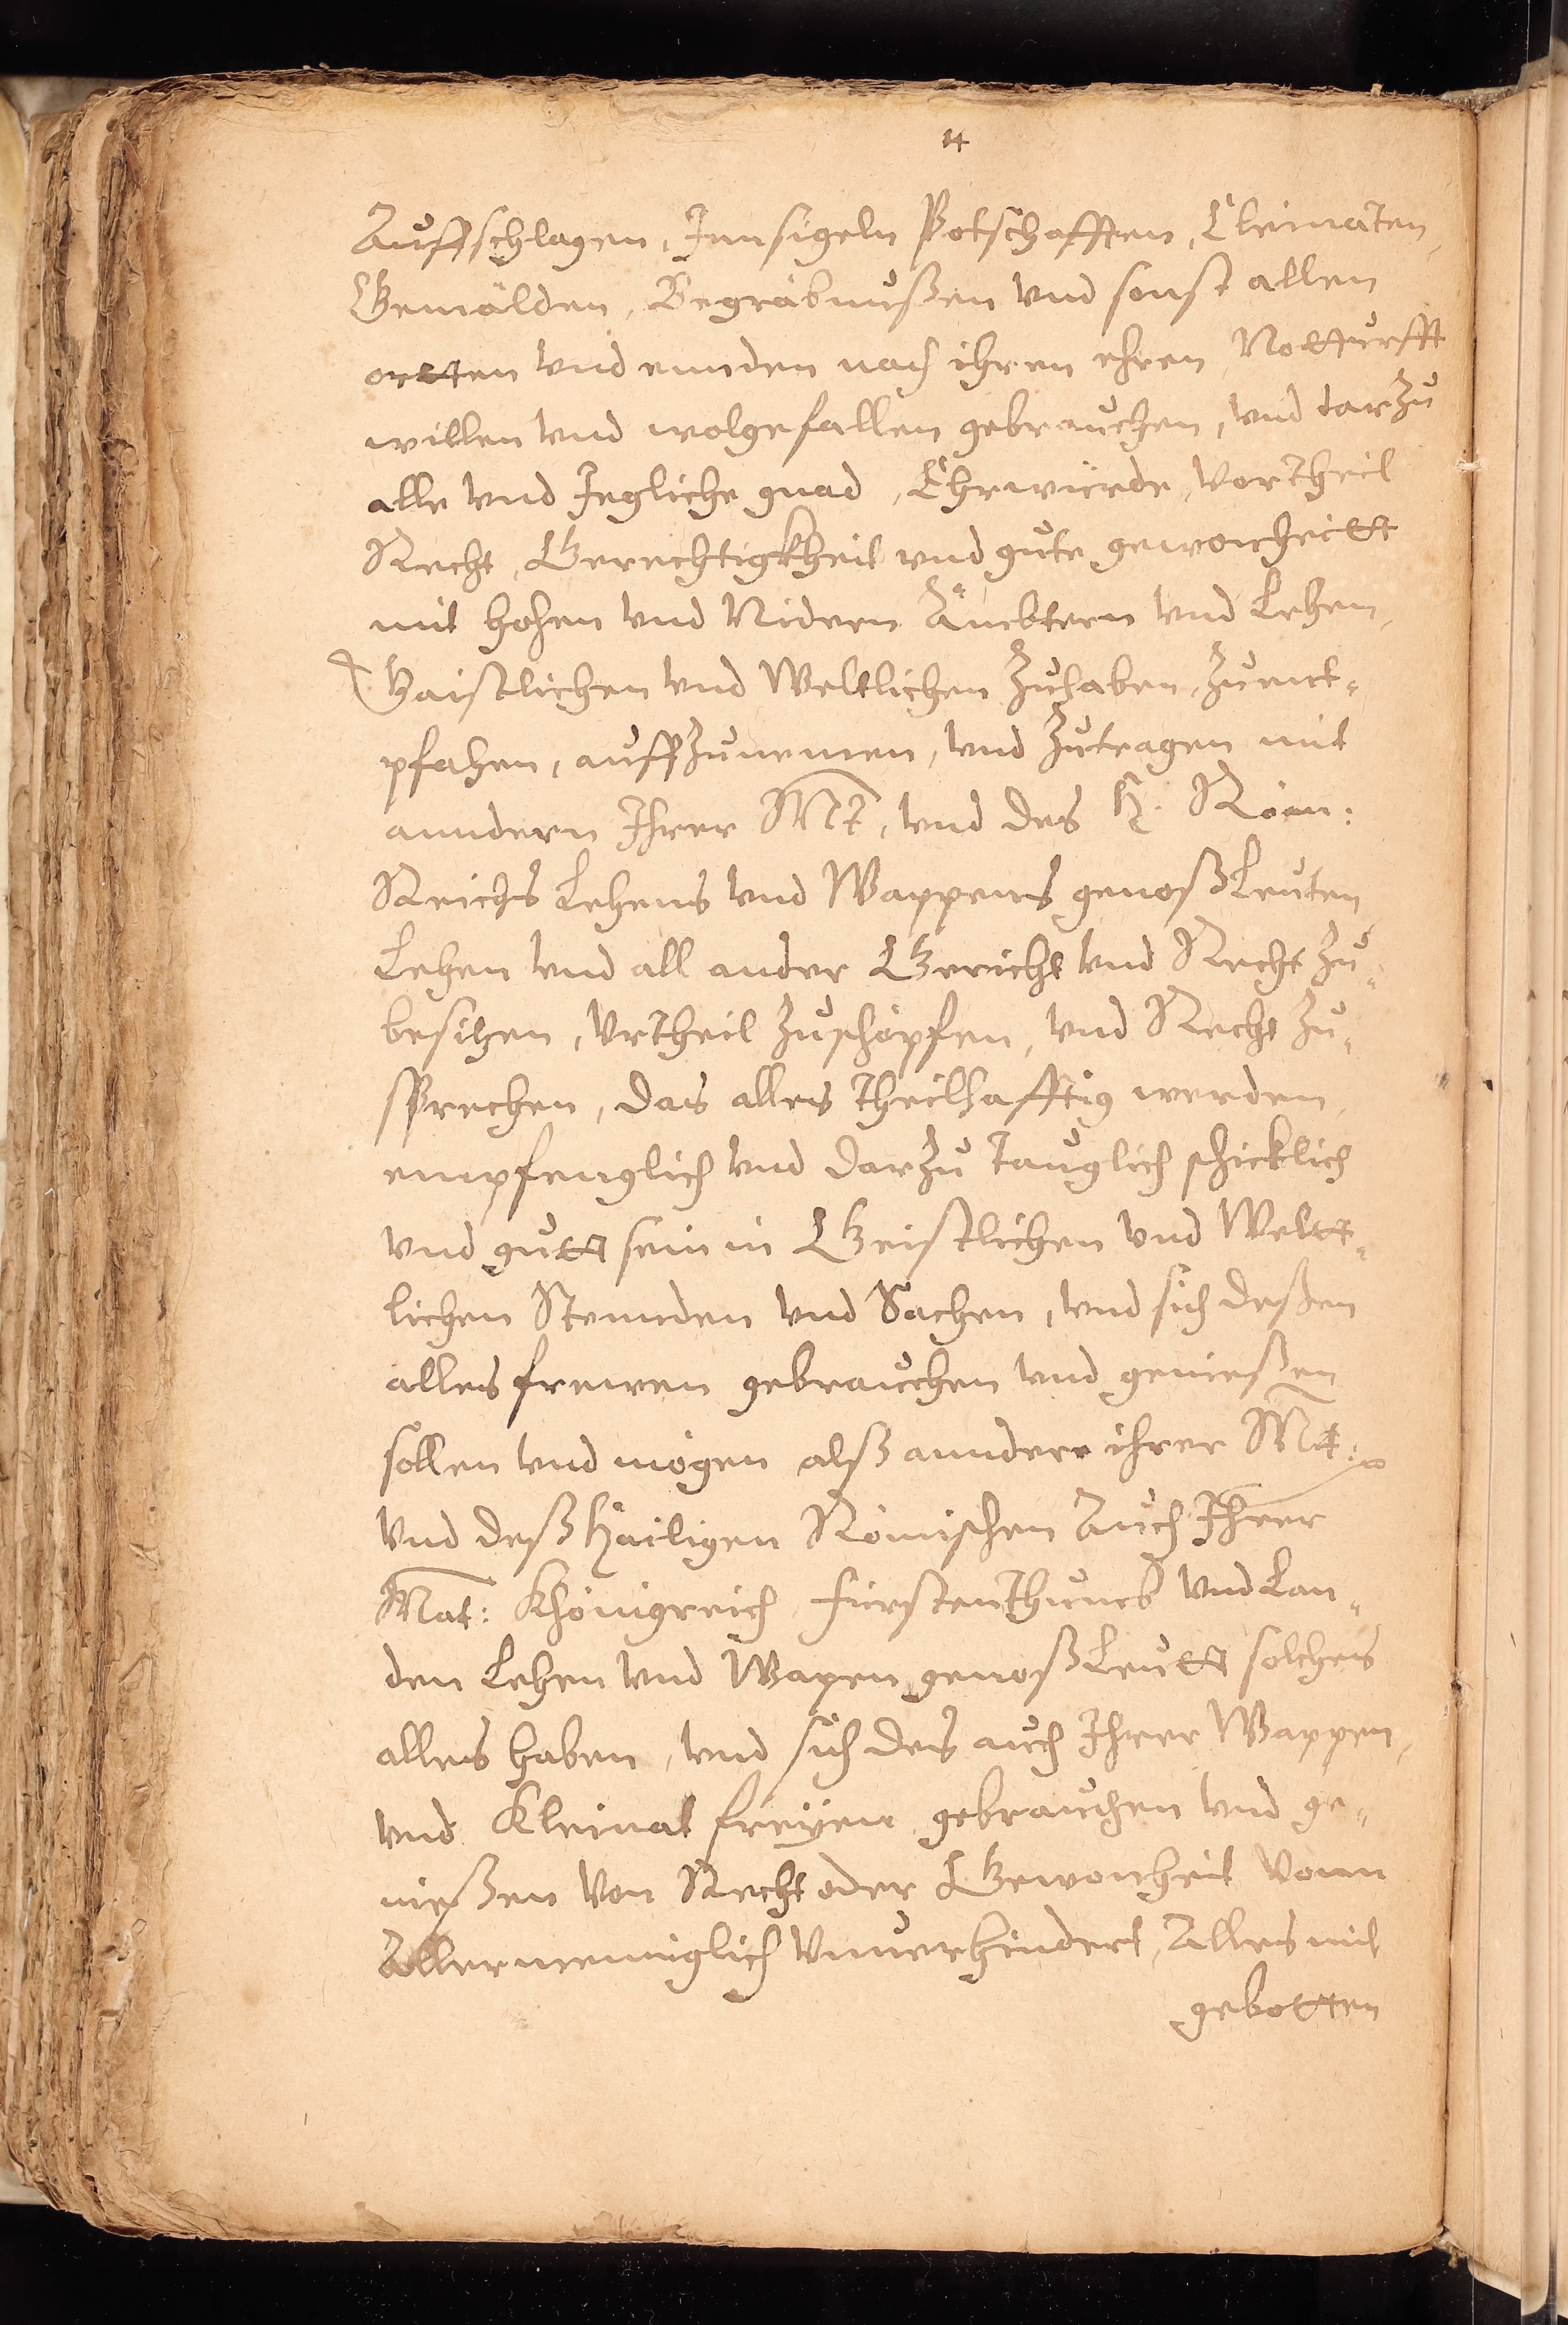 14
Auffschlagen, Innsigeln Petschafften, Cleinaten,
Gemälden, Begräbnußen vnd sonst allen
ortten vnd ennden nach ihren ehren Notturfft
willen vnd wolgefallen gebrauchen, vnd darzu
alle vnd Jegliche gnad, Ehrwürde, Vortheil
Recht, Gerechtigkheit vnd gute gewonheitt
mit hohen vnd Nidern Ämbtern vnd Lehen,
Gaistlichen vnd Weltlichen Zuhaben, Zuent-
pfahen, auffzunemen, vnd Zutragen mit
anndern Ihrer Mt, vnd des H. Röm:
Reichs Lehens vnd Wappens genoßleuten
Lehen vnd all ander Gericht vnd Recht Zu-
besitzen, Vrtheil Zuschöpfen, vnd Recht Zu-
sprechen, das alles theilhafftig werden,
empfenglich vnd darzu tauglich schicklich
vnd gutt sein in Geistlichen vnd Welt-
lichen Stennden vnd Sachen, vnd sich deßen
alles frewen gebrauchen vnd genießen
sollen vnd mögen alß anndere ihrer Mt:
vnd deß Hailigen Römischen Auch Ihrer
Mat: Khönigreich Fürstenthumb vnd Lan-
den Lehen vnd Wapen genoßleutt solches
alles haben, vnd sich des auch Ihrer Wappen,
vnd Kleinat freyen gebrauchen vnd ge-
nießen von Recht oder Gewonheit Vonn
Allermenniglich Vnuerhindert, Alles mit
gebotten